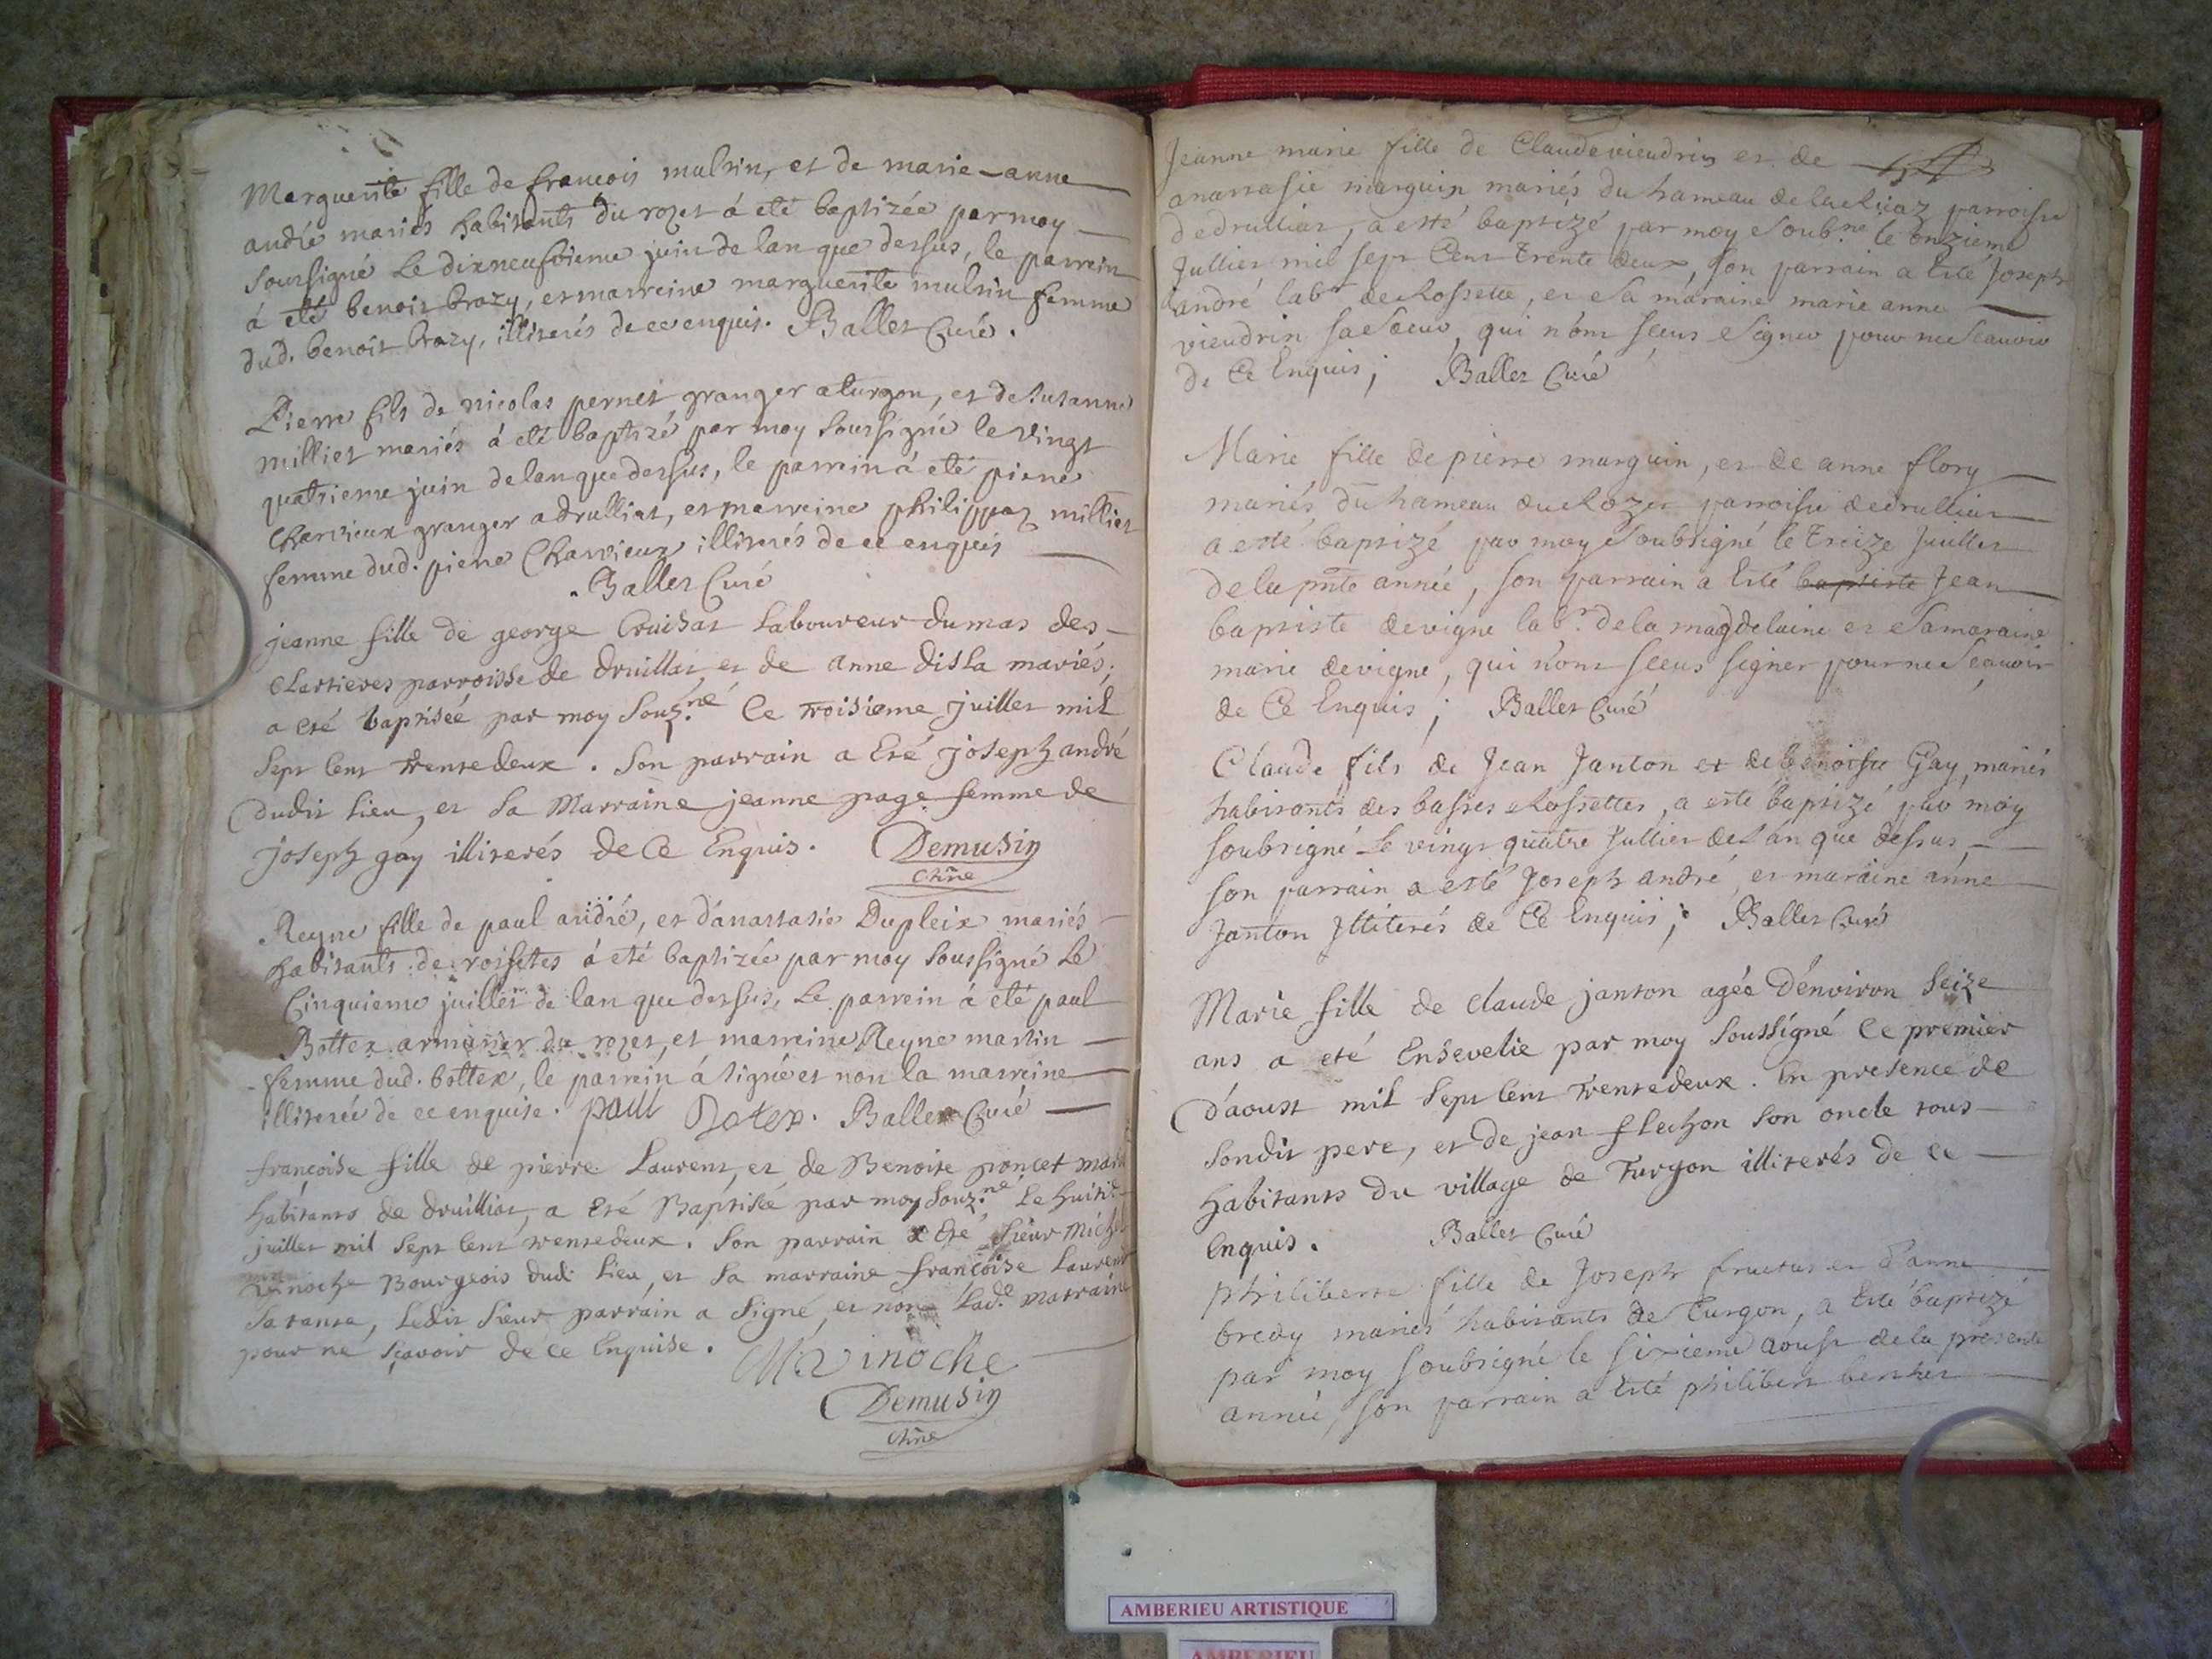 Marguerite fille de francois mulsin, et de marie-anne
andré mariés habitants du rozet á eté baptizée par moy
soussigné le dixneufvieme juin de lan que dessus, le parrein
á eté benoit brazy, et marreine marguerite mulsin femme
dud. benoit brazy, illiterés de ce enquis. Ballet Curé.
Pierre fils de nicolas pernet granger a turgon, et de Susanne
milliet mariés á eté baptizé par moy soussigné le vingt
quatrieme juin de lan que dessus, le parrein á eté pierre
Charvieux granger a drulliat, et marreine philippaz milliet
femme dud. pierre Charvieux illiterés de ce enquis
Ballet Curé
jeanne fille de george Cruisat Laboureur du mas des
Chartieres parroisse de druillat, et de Anne disla mariés,
a eté baptisée par moy Souz.né le troisieme juillet mil
Sept Cent trentedeux. Son parrain a Eté joseph andré
dudit Lieu, et Sa Marraine jeanne page femme de
joseph gay illiterés de Ce Enquis. Demusin
Chñe
Reyne fille de paul andré, et d'anastasie Dupleix mariés
habitants de roissetes á eté baptizée par moy soussigné le
Cinquieme juillet de lan que dessus, le parrein á eté paul
Bottex armurier du rozet, et marreine Reyne martin
femme dud. bottex, le parrein á signé et non la marreine
illiterée de ce enquise. paul Botex. Ballet Curé
françoise fille de pierre Laurent, et de Benoite poncet
habitants de druilliat, a Eté Baptisée par moy Souz.né Le huiti
juillet mil Sept Cent trentedeux. Son parrain a Eté Sieur Michel
vinoche Bourgeois dud. Lieu, et Sa marraine françoise Laurent
Sa tante, Ledit Sieur parrain a Signé, et non Lad.e marraine
pour ne Sçavoir de ce Enquise. M vinoche
Demusin
Chñe
Jeanne marie fille de Claude vieudrin et de
anastasie marguin mariés du hameau de parroisse
de drulliat, a esté baptizé par moy Soub.ne le onzieme
Julliet mil sept Cent trente deux, son parrain a Esté Joseph
andré lab.r de Rossette, et Sa maraine marie anne
vieudrin sa Soeur, qui nont sceus Signer pour ne Scauoir
de Ce Enquis; Ballet Curé
Marie fille de pierre marguin, et de anne flory
mariés du hameau du Rozet parroisse de drulliat
a esté baptizé par moy Soubsigné le treize Juillet
de la pnte année, son parrain a Esté baptiste Jean
baptiste devigne lab.r de la magdelaine et Sa maraine
marie devigne, qui nont sceus signer pour ne Scauoir
de Ce Enquis; Ballet Curé
Claude fils de Jean Janton et de benoiste Gay, mariés
habitants des basses Rossettes, a esté baptizé par moy
soubsigné Le vingt quatre Julliet de Lan que dessus,
son parrain a esté Joseph andré, et maraine anne
Janton Illiterés de Ce Enquis; Ballet Curé
Marie fille de claude janton agée d'environ Seize
ans a eté Ensevelie par moy Soussigné le premier
d'aoust mil Sept Cent trentedeux. En presence de
Sondit pere, et de jean flechon Son oncle tous
habitants du village de Turgon illiterés de ce
Enquis. Ballet Curé
philiberte fille de Joseph fructus et d'anne
bredy mariés habitants de Turgon, a Esté baptizé
par moy soubsigné le sixieme aoust de la presente
année, son parrain a Esté philibert berthet
AMBERIEU ARTISTIQUE
AMBERIEU